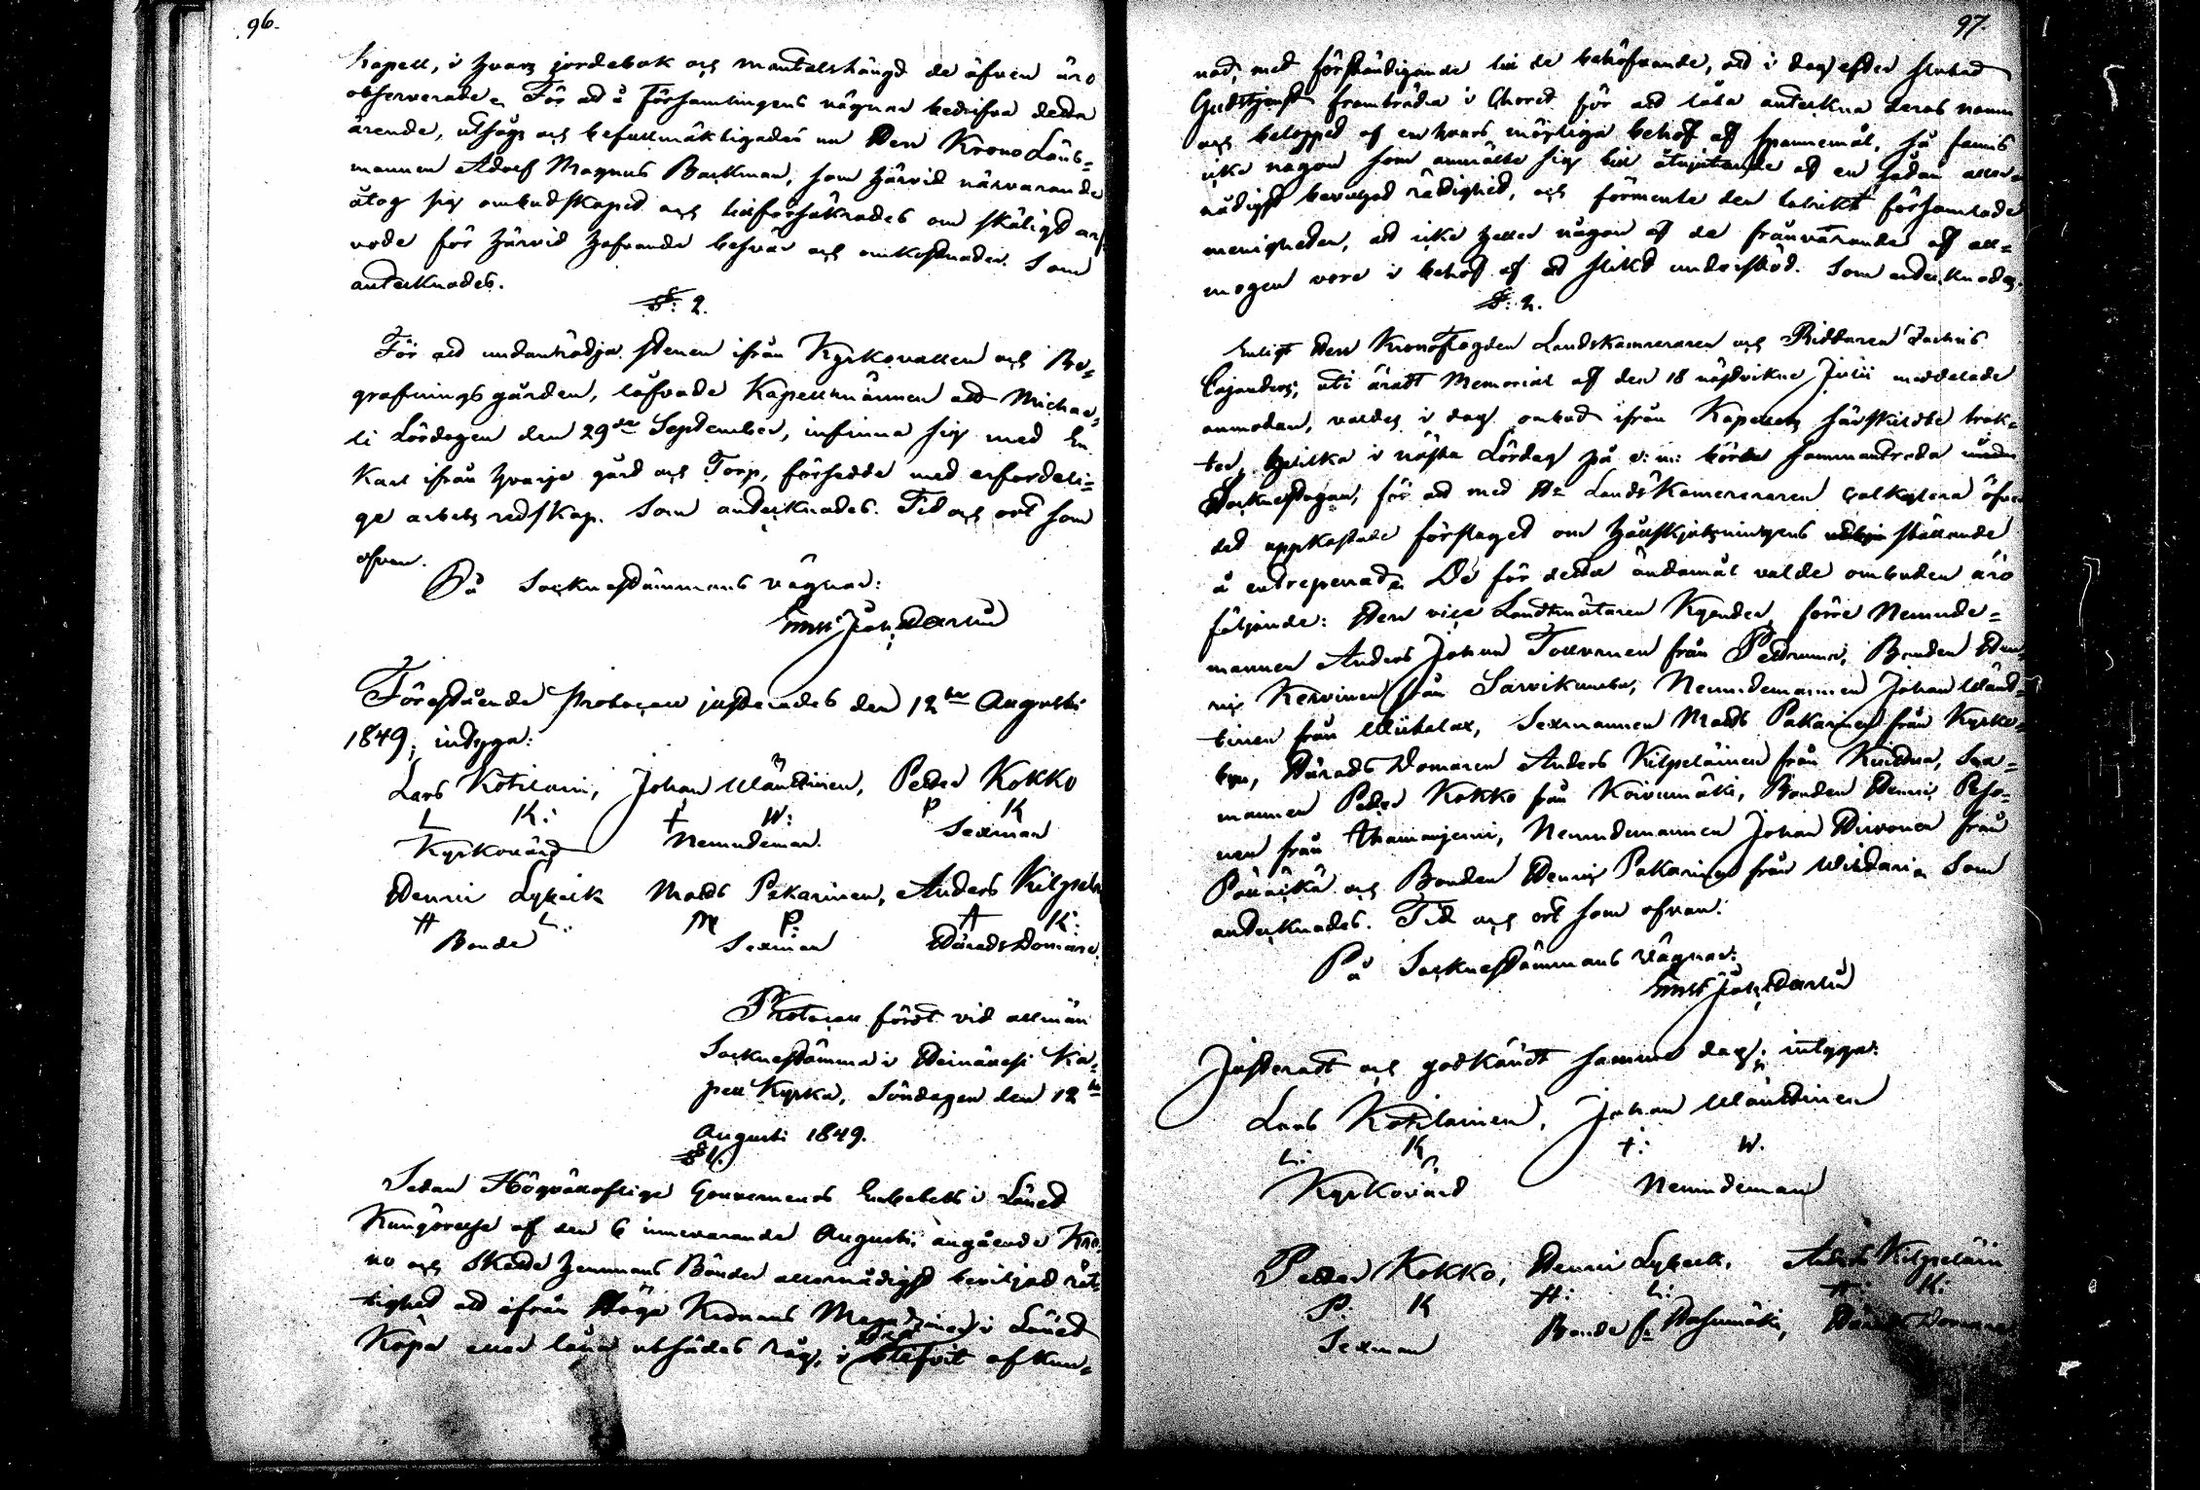 96.
Kapell, i hvars jordebok och mantalslängd de äfven äro
observerade. För att å Församlingens vägnar bedrifva detta
ärende, utsågs och befullmäktigades nu Herr Krono Läns=
mannen Adolf Magnus Backman, som härvid närvarande
åtog sig ombudskapet och tillförsäkrades om skäligt ar=
vode för härvid hafvande besvär och omkostnader. Som
antecknades.
§: 2.
För att undanrödja stenen ifrån Kyrkovallen och Be=
grafningsgården, lofvade Kapellmännen att Michae=
li Lördagen den 29de September, infinna sig med En
Karl ifrån hvarje gård och Torp, försedde med erforderli=
ge arbets redskap. Som antecknades. Tid och ort som
ofvan.
På Socknestämmans vägnar:
Förestående Protocoll justerades den 12te Augusti
1849; intyga:
Lars Kotilain, Johan Wäntinen, Petter Kokko
L K: J W: P K
Kyrkovärd Nemndeman. Sexman
Henric Lyheik Mats Pakarinen, Anders Kilpelä
H L: M P: A K:
Bonde Sexman Härads Domare.
Protocoll fördt vid allmän
Socknestämma i Heinävesi Ka=
pell Kyrka, Söndagen den 12te
Augusti 1849.
§ 1.
Sedan Högvälloflige Gouvernements Embetets i Länet
Kungörelse af den 6 innevarande Augusti, angående Kro=
no och Skatte hemmans Bönder allernådigst beviljad rät=
tighet att ifrån Höga Kronans Magaziner i Länet
Köpa eller låna utsädes råg, i blifvit afkun=
97.
nad, med förständigande till de behöfvande, att i dag efter slutad
Gudstjenst framträda i Choret för att låta anteckna deras namn
och beloppet af enhvars möjliga behof af spannemål, så fanns
icke någon som anmälte sig till åtnjutande af en sådan aller=
nådigst beviljad rättighet, och förmente den talrikt församlade
menigheten, att icke heller någon af de frånvarande af all=
mogen vore i behof af ett slikt understöd. Som antecknades.
§: 2.
Enligt Herr Kronofogden Landskamreraren och Riddaren
Cajanders, uti äradt Memorial af den 18 nästvikne Julii meddelade
anmodan, valdes i dag ombud ifrån Kapellets särskildte trak=
ter, hvilka i nästa Lördag på e: m: börde sammanträda
Socknestugan, för att med Hr LandsKamereraren öfver
det uppkastade förslaget om hållskjutsningens ställande
å entreprenad. De för detta ändamål valde ombuden äro
följande: Herr vice Landtmätaren Kyander, förre Nemnde=
mannen Anders Johan Tolvanen från Petrumä, Bonden Hen=
ric Kervinen från Sarvikumbu, Nemndemannen Johan Wänt=
tinen från Wihtalax, Sexmannen Mats Pakarinen från Kyrko=
byn, Härads Domaren Anders Kilpeläinen från Kuittua, Sex=
mannen Peter Kokko från Koivumäki, Bonden Henric Peso=
nen från Thamanjemi, Nemndemannen Johan Hirvonen från
Pölläikä och Bonden Henric Pakarinen från Wihtari. Som
antecknades. Tid och ort som ofvan.
På Socknestämmans vägnar:
Justeradt och godkändt samma dag; intyga:
Lars Kotilainen, Johan Wänttinen
L: K J: W.
Kyrkovärd Nemndeman
Petter Kokko, Henric Lyheik, Anders Kilpeläin
P. K H: L: A: K:
Sexman Bonde fr. Hasumäki, Härads Domare